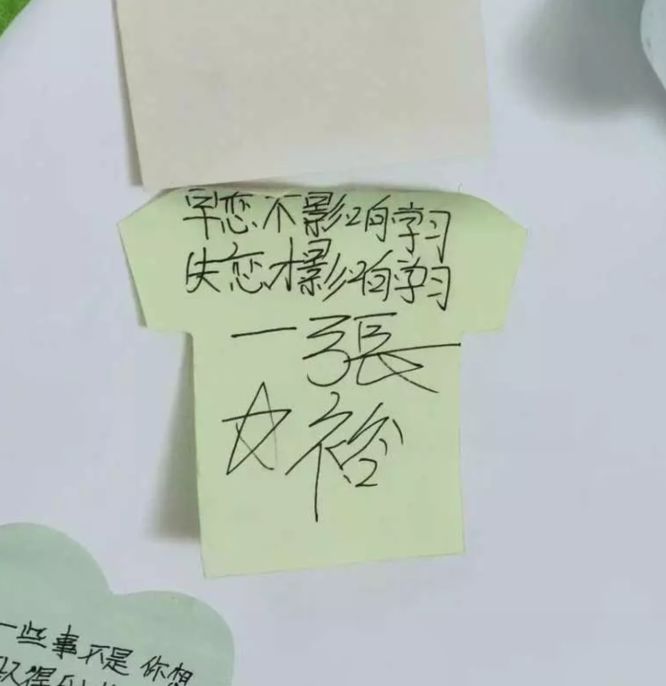 早恋不影响学习
失恋才影响学习
一張
☆裕
一些事不是你想